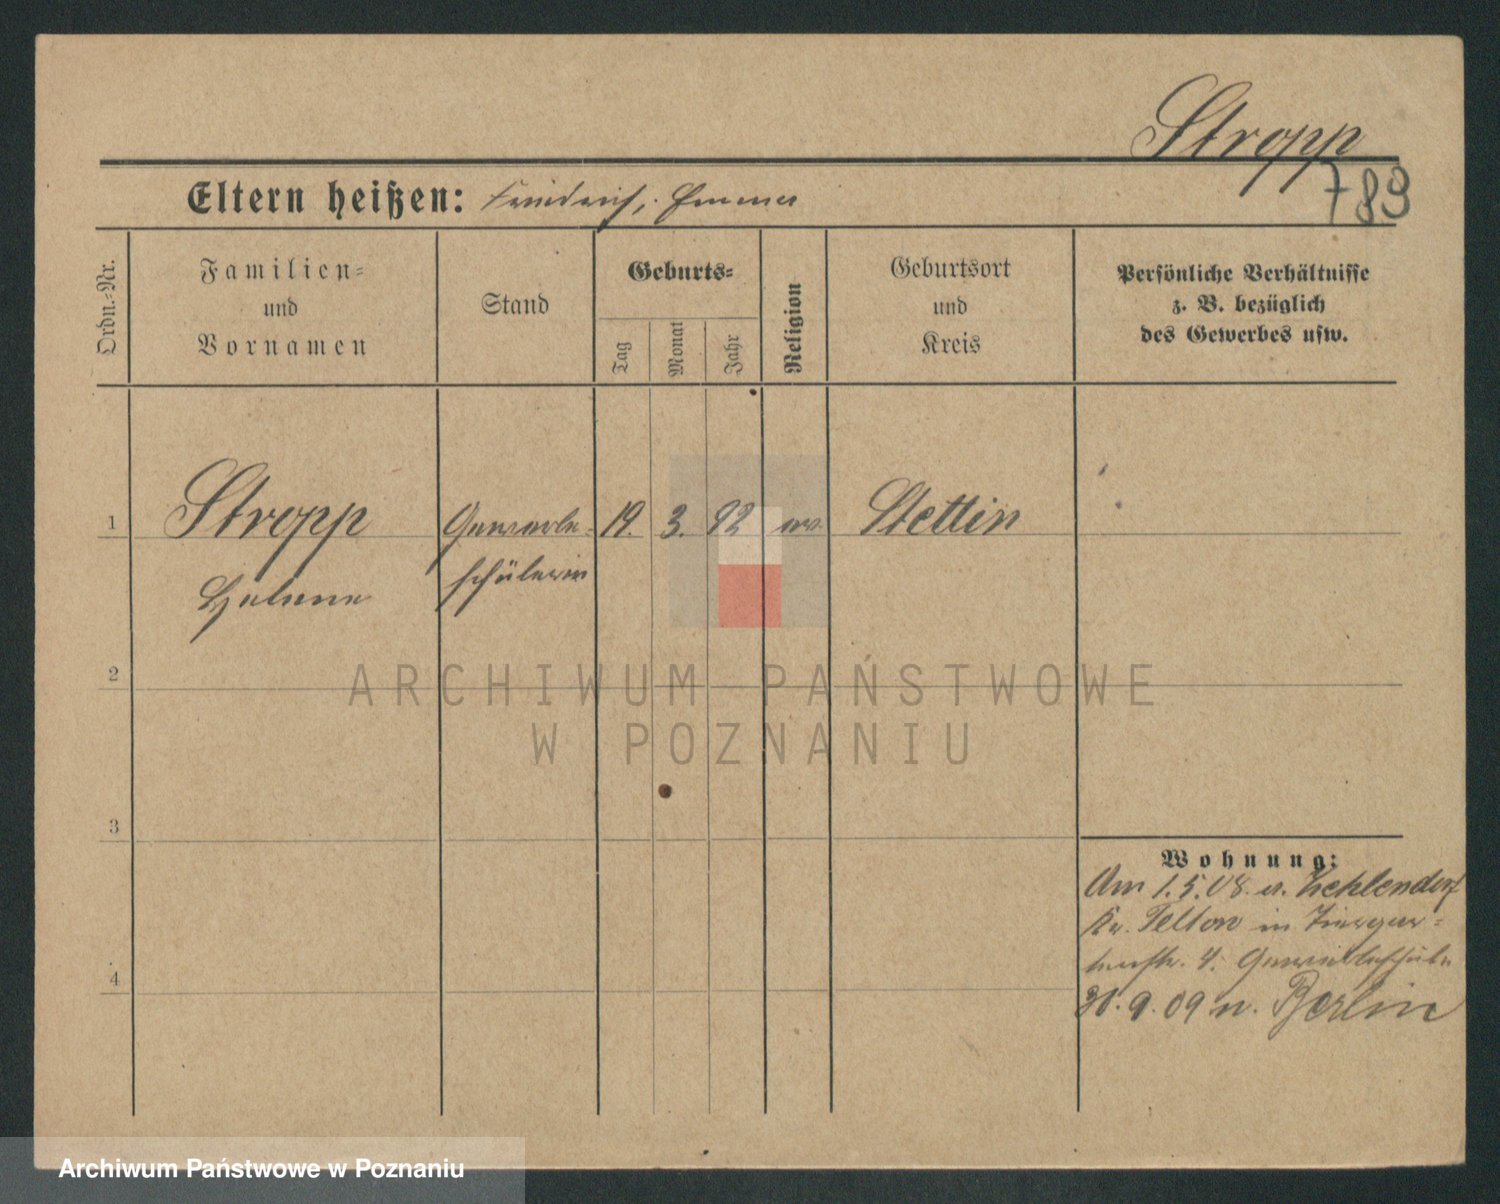 Stropp
789
Eltern heißen: Friedrich, Emma
Ordn.-Nr.
Familien-
und
Vornamen
Stand
Geburts-
Tag
Monat
Jahr
Religion
Geburtsort
und
Kreis
Persönliche Verhältnisse
z. B. bezüglich
des Gewerbes usw.
1
Stropp
Helene
Gewerbe-
schülerin
19. 3. 92
ev.
Stettin
2
3
4
Wohnung:
Am 1.5.08. v. Zehlendorf
Kr. Teltow in Tiergar-
tenstr. 4. Gewerbeschule
30.9.09 n. Berlin
ARCHIWUM PAŃSTWOWE
W POZNANIU
Archiwum Państwowe w Poznaniu